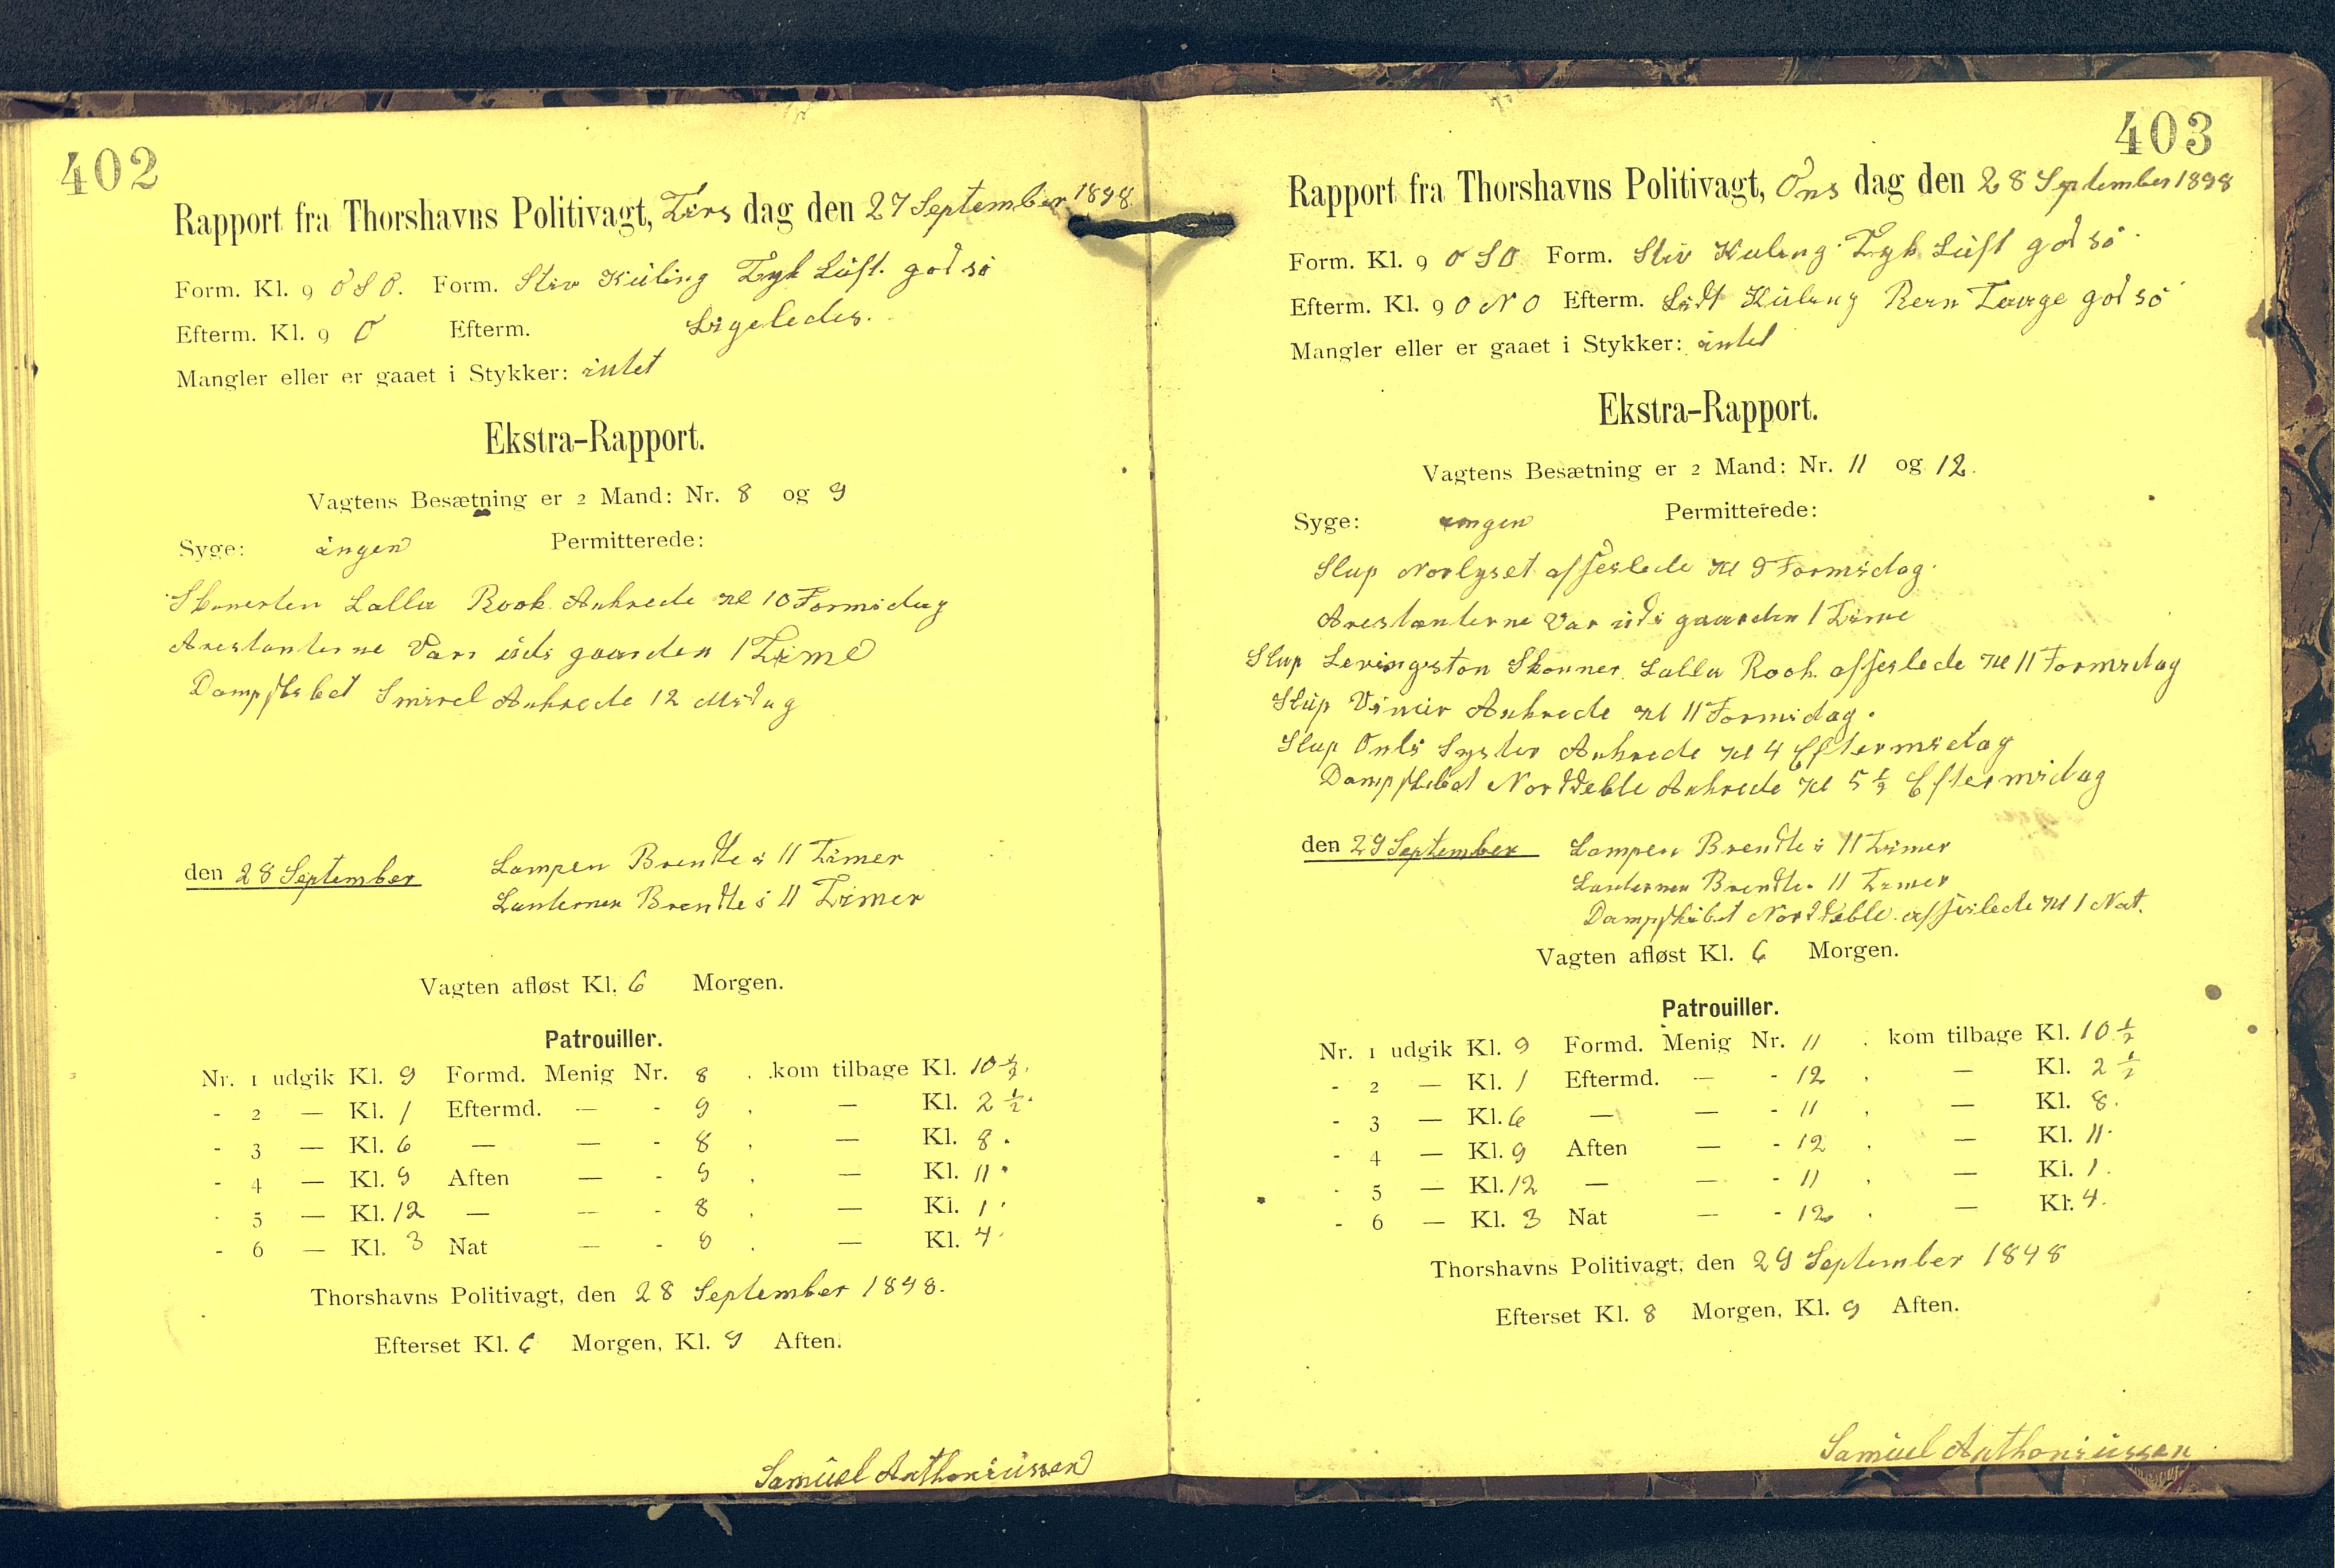 402
Rapport fra Thorshavns Politivagt, Tirs dag den 27 September 1898
Form. Kl. 9 OSO. Form. Stiv Kuling Tyk Luft. god sö
Efterm. Kl. 9 O Efterm. Ligeledes.
Mangler eller er gaaet i Stykker: intet
Ekstra-Rapport.
Vagtens Besætning er 2 Mand: Nr. 8 og 9
Syge: ingen Permitterede:
Skonerten Lalla Rook Ankrede Kl 10 Formidag
Arestanterne Var udi gaarden 1 Time
Dampskibet Smirel Ankrede 12 Midag
den 28 September Lampen Brendte i 11 Timer
Lanternen Brendte i 11 Timer
Vagten afløst Kl. 6 Morgen.
Patrouiller.
Nr. 1 udgik Kl. 9 Formd. Menig Nr. 8 . kom tilbage Kl. 10 ½.
- 2 — Kl. 1 Eftermd. — - 9 . — Kl. 2 ½.
- 3 — Kl. 6 — — - 8 . — Kl. 8.
- 4 — Kl. 9 Aften — - 9 . — Kl. 11.
- 5 — Kl. 12 — — - 8 . — Kl. 1.
- 6 — Kl. 3 Nat — - 9 . — Kl. 4.
Thorshavns Politivagt, den 28 September 1898.
Efterset Kl. 6 Morgen, Kl. 9 Aften.
Samuel Anthoniussen
403
Rapport fra Thorshavns Politivagt, Ons dag den 28 September 1898
Form. Kl. 9 OSO Form. Stiv Kuling Tyk Luft god sö
Efterm. Kl. 9 ONO Efterm. Lidt Kuling Ren Taage god sö
Mangler eller er gaaet i Stykker: intet
Ekstra-Rapport.
Vagtens Besætning er 2 Mand: Nr. 11 og 12.
Syge: ingen Permitterede:
Slup Norlyset afseslede Kl 9 Formidag.
Arestanterne Var udi gaarden 1 Time
Slup Levingston Skonner Lalla Rook afseslede Kl 11 Formidag
Slup Vimir Ankrede Kl 11 Formidag.
Slup Syster Ankrede Kl 4 Eftermidag
Dampskibet Ankrede Kl 5 ½ Eftermidag
den 29 September Lampen Brendte i 11 Timer
Lanternen Brendte 11 Timer
Dampskibet afseslede Kl 1 Nat.
Vagten afløst Kl. 6 Morgen.
Patrouiller.
Nr. 1 udgik Kl. 9 Formd. Menig Nr. 11 . kom tilbage Kl. 10 ½
- 2 — Kl. 1 Eftermd. — - 12 . — Kl. 2 ½
- 3 — Kl. 6 — — - 11 . — Kl. 8.
- 4 — Kl. 9 Aften — - 12 . — Kl. 11.
- 5 — Kl. 12 — — - 11 . — Kl. 1.
- 6 — Kl. 3 Nat — - 12 . — Kl. 4.
Thorshavns Politivagt, den 29 September 1898
Efterset Kl. 8 Morgen, Kl. 9 Aften.
Samuel Anthoniussen